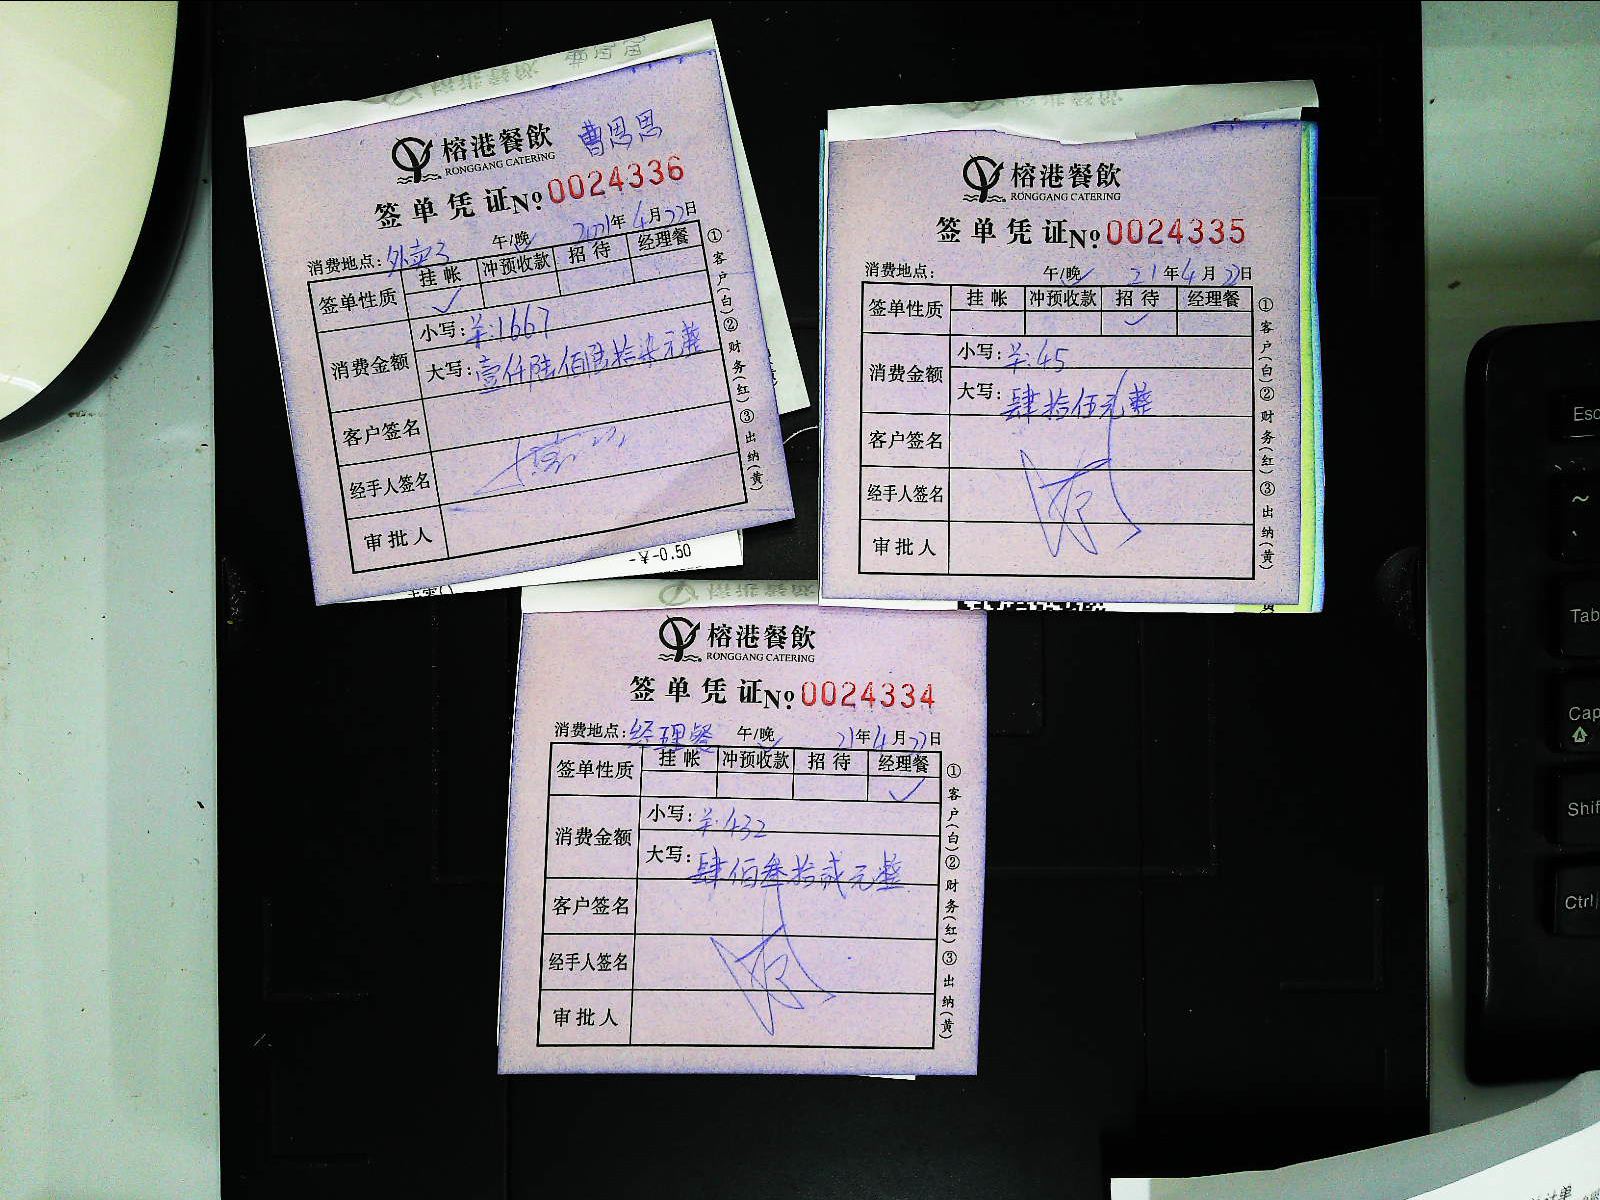 榕港餐飲
RONGGANG CATERING
曹思思
签单凭证№0024336
消费地点:外卖3 午/晚✓ 2021年4月22日
签单性质 挂帐 冲预收款 招待 经理餐
✓
消费金额 小写:¥:1667
大写:壹仟陆佰陆拾柒元整
客户签名
经手人签名
审批人
①客户(白)②财务(红)③出纳(黄)
-¥-0.50
榕港餐飲
RONGGANG CATERING
签单凭证№0024335
消费地点: 午/晚✓ 21年4月22日
签单性质 挂帐 冲预收款 招待 经理餐
✓
消费金额 小写:¥:45
大写:肆拾伍元整
客户签名
经手人签名
审批人
①客户(白)②财务(红)③出纳(黄)
榕港餐飲
RONGGANG CATERING
签单凭证№0024334
消费地点:经理餐 午/晚✓ 21年4月22日
签单性质 挂帐 冲预收款 招待 经理餐
✓
消费金额 小写:¥:432
大写:肆佰叁拾贰元整
客户签名
经手人签名
审批人
①客户(白)②财务(红)③出纳(黄)
Esc
~
Tab
Cap
Shif
Ctrl